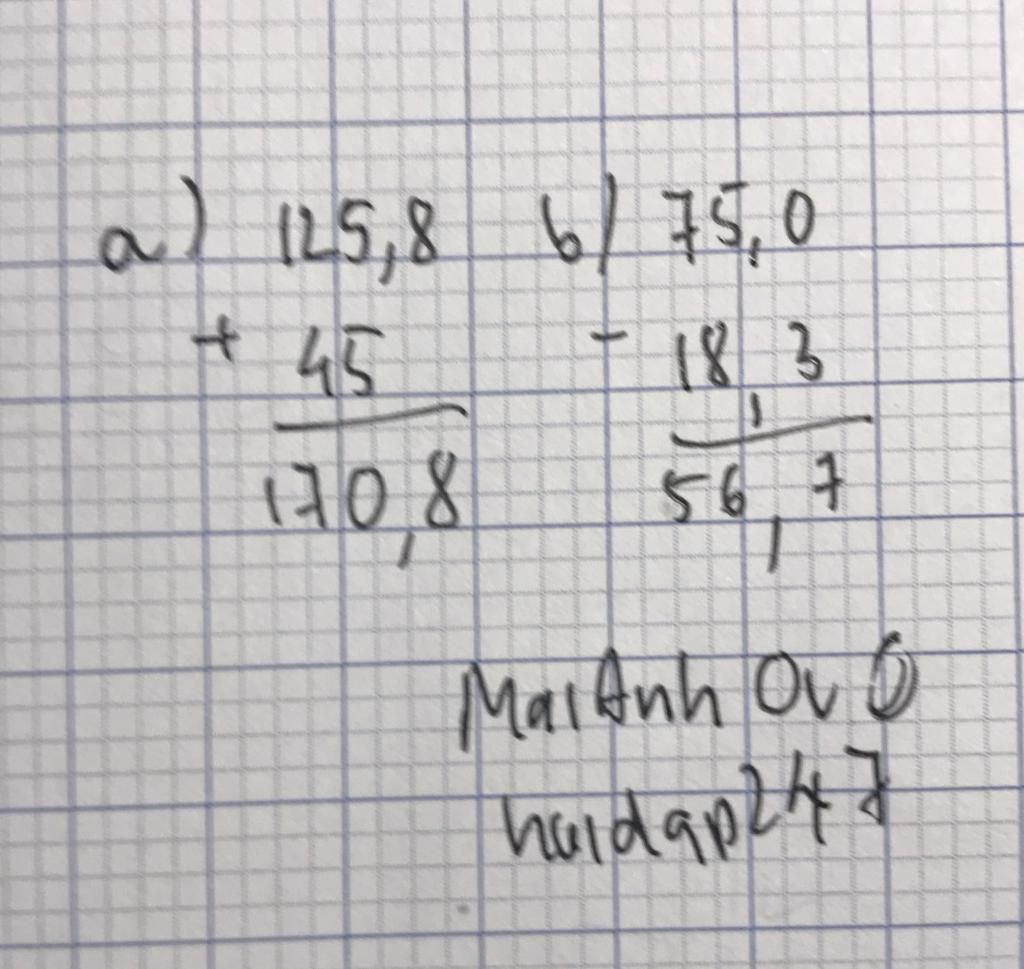 a) 125,8 b) 75,0
+ 45 - 18,3
170,8 56,7
MaiAnh OvO
hoidap247